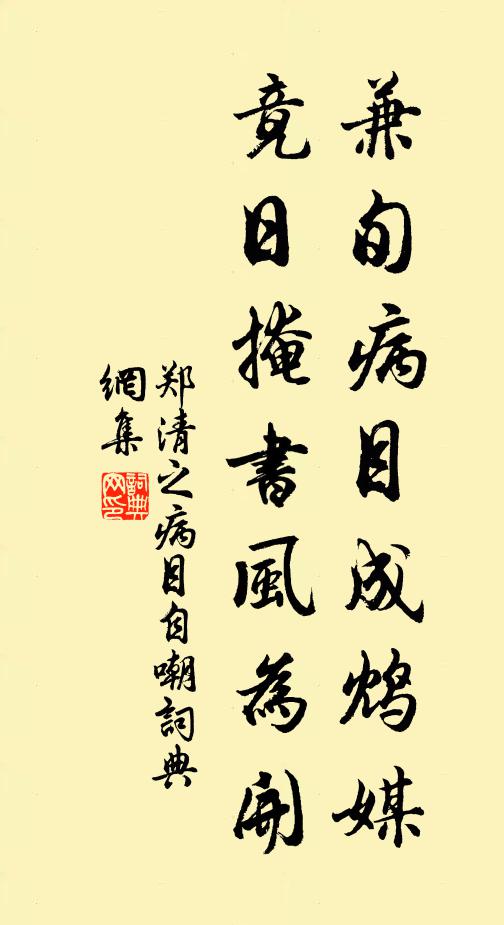 兼旬病目成鸩媒
竟日掩書風為開
郑清之病目自嘲詞典
網集
詞典網印